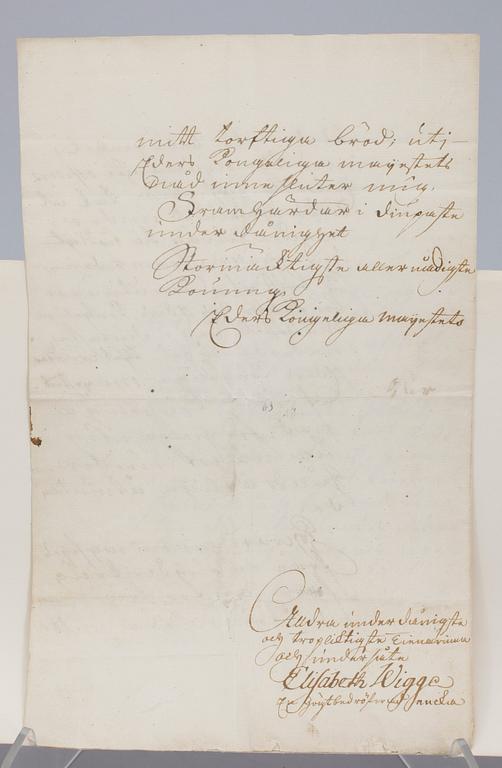 mitt torftiga bröd; uti
Eders Kongeliga mayestets
Nåd inne sluter mig.
Framhärdar i diupaste
under dånighet
Stormäcktigste aller nådigste
Konung
Eders Kongeliga mayestets
Alldra under dånigste
och tropliktigste tienarinna
och undersåte
Elisabeth Wigge
En högtbedröfwad encka